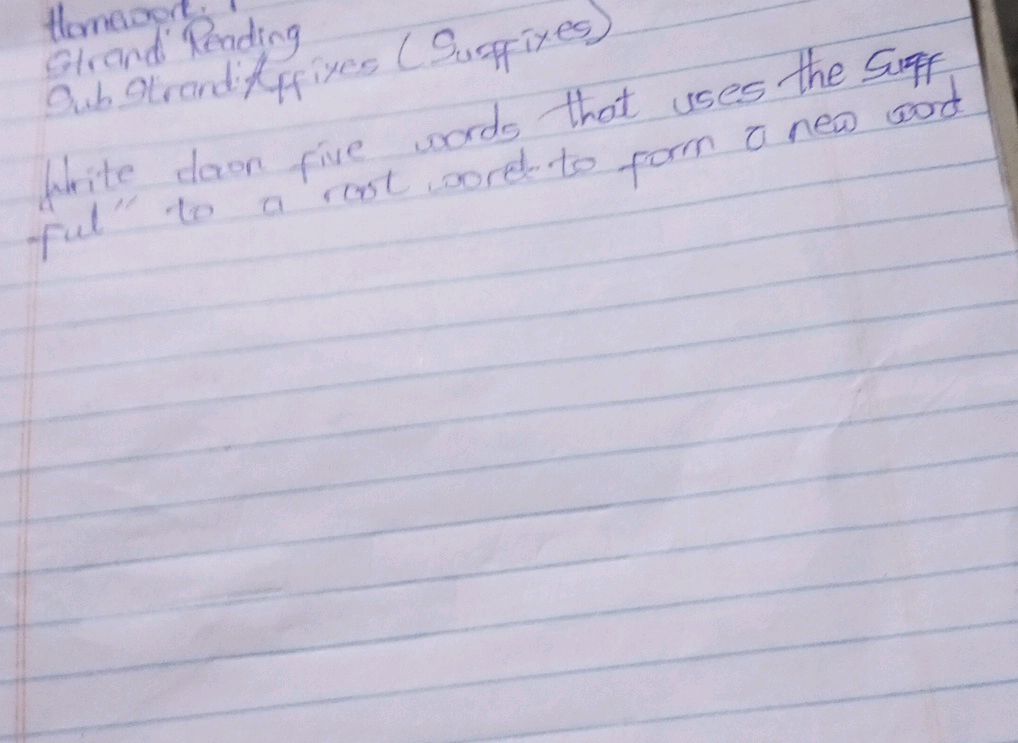 Homework.
Strand: Reading
Sub Strand: Affixes (Suffixes)
Write down five words that uses the Suff
-ful" to a root word to form a new word